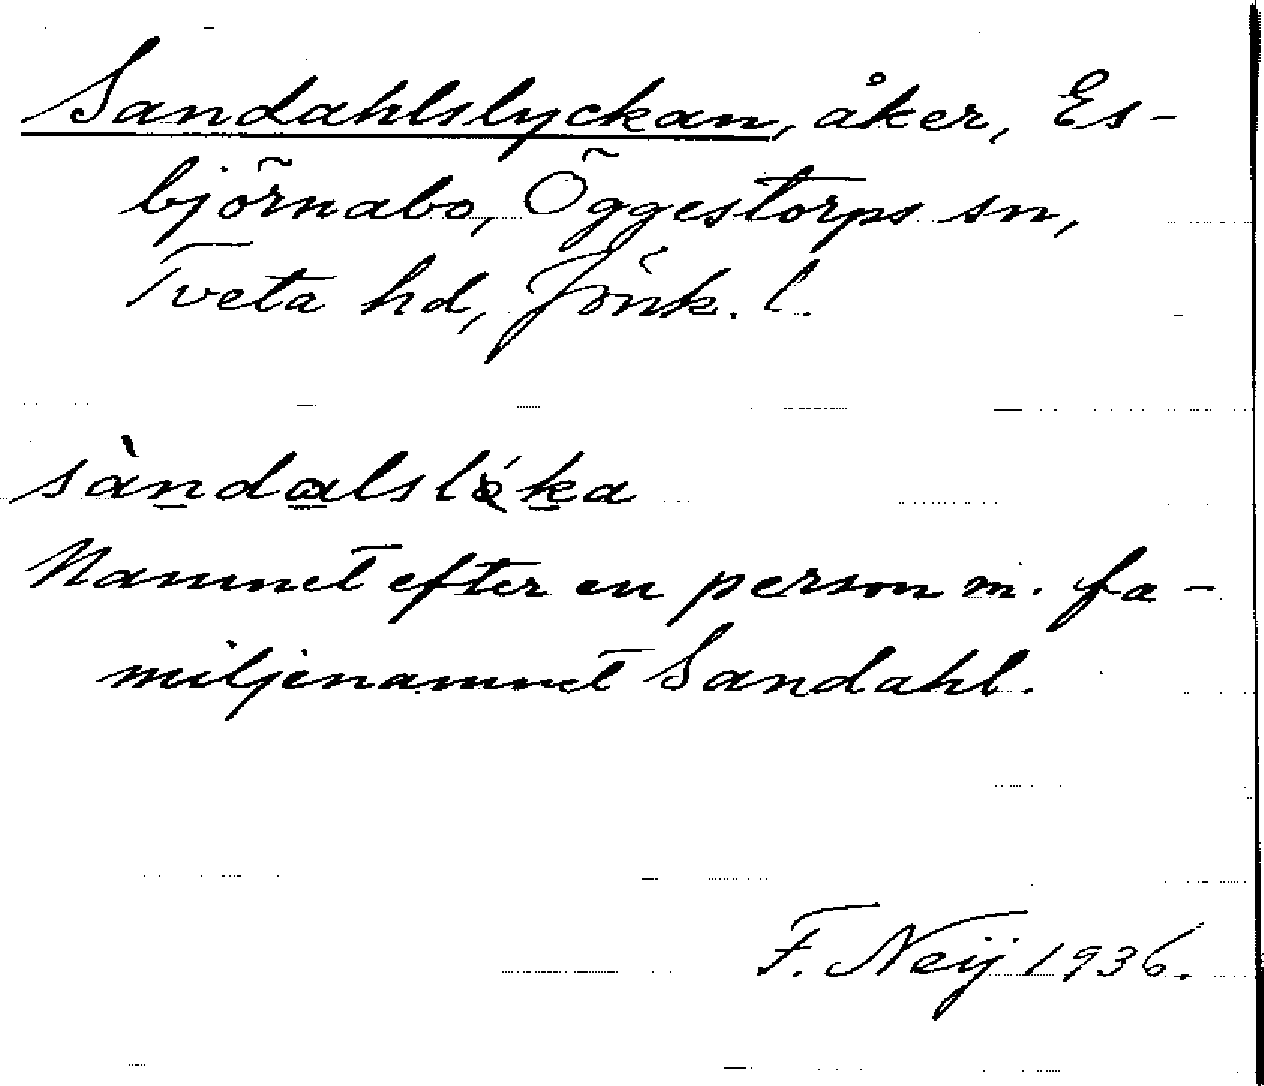 Sandahlslyckan, åker, Es-
björnabo, Öggestorps sn,
Tveta hd, Jönk. l.
sàndalslǿka
Namnet efter en person m. fa-
miljenamnet Sandahl.
F. Neij 1936.